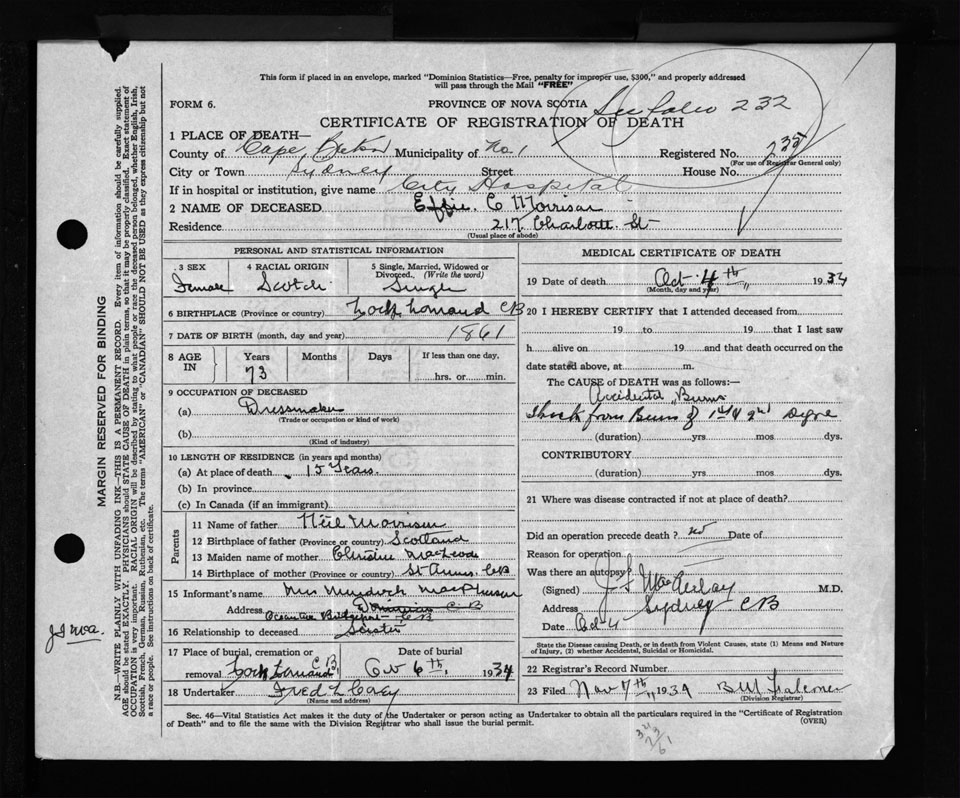 This form if placed in an envelope, marked "Dominion Statistics—Free, penalty for improper use, $300," and properly addressed
will pass through the Mail "FREE"
FORM 6.
PROVINCE OF NOVA SCOTIA
232
CERTIFICATE OF REGISTRATION OF DEATH
1 PLACE OF DEATH—
County of Cape Breton Municipality of No. 1 Registered No. 235
(For use of Registrar General only)
City or Town Sydney Street House No.
If in hospital or institution, give name City Hospital
2 NAME OF DECEASED Effie C Morrison
Residence 217 Charlotte St
(Usual place of abode)
PERSONAL AND STATISTICAL INFORMATION
3 SEX Female
4 RACIAL ORIGIN Scotch
5 Single, Married, Widowed or Divorced. (Write the word) Single
6 BIRTHPLACE (Province or country) Loch Lomand CB
7 DATE OF BIRTH (month, day and year) 1861
8 AGE IN Years 73 Months Days If less than one day, hrs. or min.
9 OCCUPATION OF DECEASED
(a) Dressmaker
(Trade or occupation or kind of work)
(b)
(Kind of industry)
10 LENGTH OF RESIDENCE (in years and months)
(a) At place of death 15 Years.
(b) In province
(c) In Canada (if an immigrant)
Parents
11 Name of father Neil Morrison
12 Birthplace of father (Province or country) Scotland
13 Maiden name of mother Christine MacLeod
14 Birthplace of mother (Province or country) St Anns CB
15 Informant's name Mrs Murdoch MacPherson
Address CB
CB
16 Relationship to deceased Sister
17 Place of burial, cremation or removal Loch Lomand CB
Date of burial Oct 6th, 1934
18 Undertaker Fred L Casey
(Name and address)
MEDICAL CERTIFICATE OF DEATH
19 Date of death Oct 4th 1934
(Month, day and year)
20 I HEREBY CERTIFY that I attended deceased from
19 to 19 that I last saw
h alive on 19 and that death occurred on the
date stated above, at m.
The CAUSE of DEATH was as follows:—
Accidental Burns
Shock from Burns of 1st & 2nd Degre
(duration) yrs mos dys.
CONTRIBUTORY
(duration) yrs. mos. dys.
21 Where was disease contracted if not at place of death?
Did an operation precede death? no Date of
Reason for operation
Was there an autopsy?
(Signed) MacAulay M.D.
Address Sydney CB
Date Oct 4
State the Disease causing Death, or in death from Violent Causes, state (1) Means and Nature
of Injury, (2) whether Accidental, Suicidal or Homicidal.
22 Registrar's Record Number
23 Filed Nov 7th 1934 B M Falconer
(Division Registrar)
Sec. 46—Vital Statistics Act makes it the duty of the Undertaker or person acting as Undertaker to obtain all the particulars required in the "Certificate of Registration
of Death" and to file the same with the Division Registrar who shall issue the burial permit.
(OVER)
34
73
61
MARGIN RESERVED FOR BINDING
N.B.—WRITE PLAINLY WITH UNFADING INK—THIS IS A PERMANENT RECORD. Every item of information should be carefully supplied.
AGE should be stated EXACTLY. PHYSICIANS should STATE CAUSE OF DEATH in plain terms, so that it may be properly classified. Exact statement of
OCCUPATION is very important. RACIAL ORIGIN will be described by stating to what people or race the deceased person belonged, whether English, Irish,
Scottish, French, German, Russian, Ruthenian, etc. The terms "AMERICAN" or "CANADIAN" SHOULD NOT BE USED as they express citizenship but not
a race or people. See instructions on back of certificate.